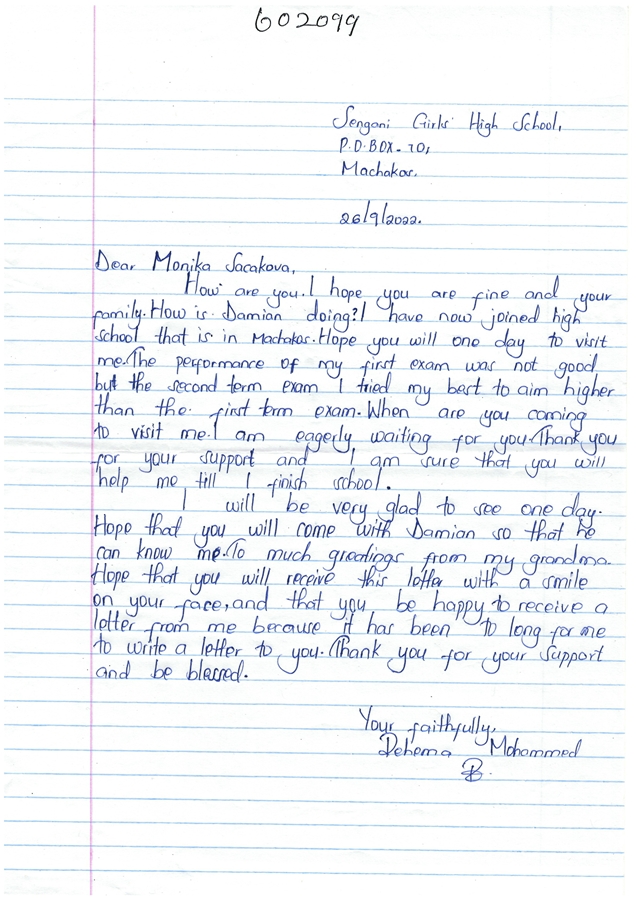 602099
Sengani Girls' High School,
P.O.BOX-70,
Machakos.
26/9/2022.
Dear Monika Sacakova,
How are you.I hope you are fine and your
family.How is Damian doing?I have now joined high
school that is in Machakos.Hope you will one day to visit
me.The performance of my first exam was not good
but the second term exam I tried my best to aim higher
than the first term exam.When are you coming
to visit me.I am eagerly waiting for you.Thank you
for your support and I am sure that you will
help me till I finish school.
I will be very glad to see one day.
Hope that you will come with Damian so that he
can know me.To much greetings from my grandma.
Hope that you will receive this letter with a smile
on your face,and that you be happy to receive a
letter from me because it has been to long for me
to write a letter to you.Thank you for your support
and be blessed.
Your faithfully,
Dehema Mohammed